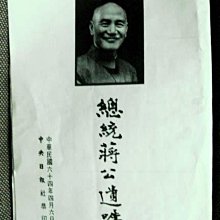 總統蔣公遺
中華民國六十四年四月六日
中央日報社